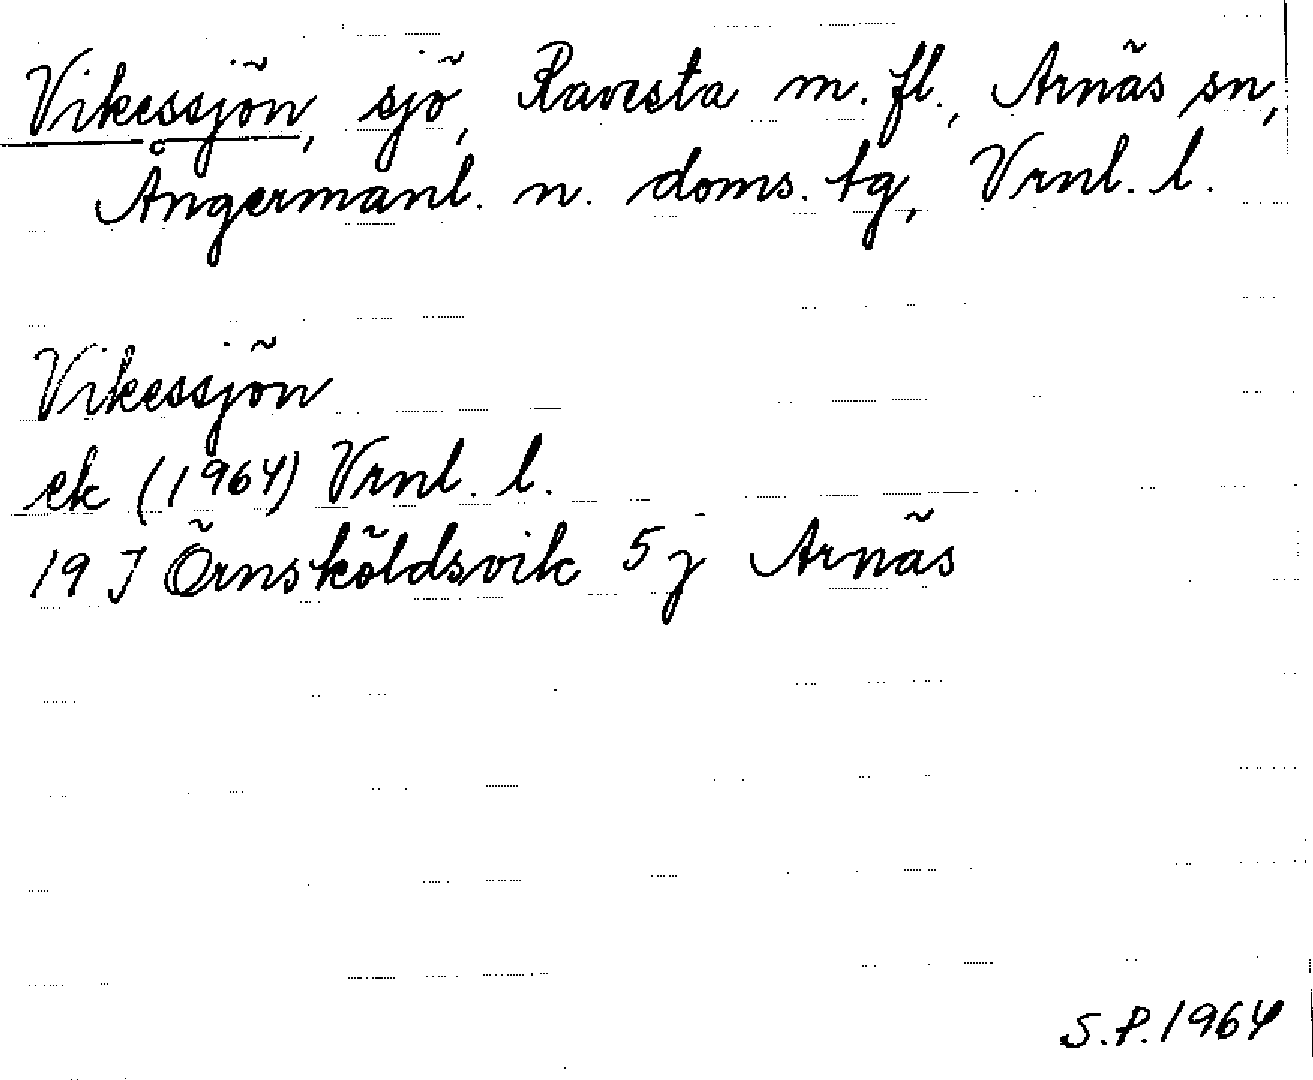 Vikessjön, sjö, Ravesta m. fl., Arnäs sn,
Ångermanl. n. doms. tg, Vrnl. l.
Vikessjön
ek (1964) Vrnl. l.
19 J Örnsköldsvik 5j Arnäs
S.P. 1964